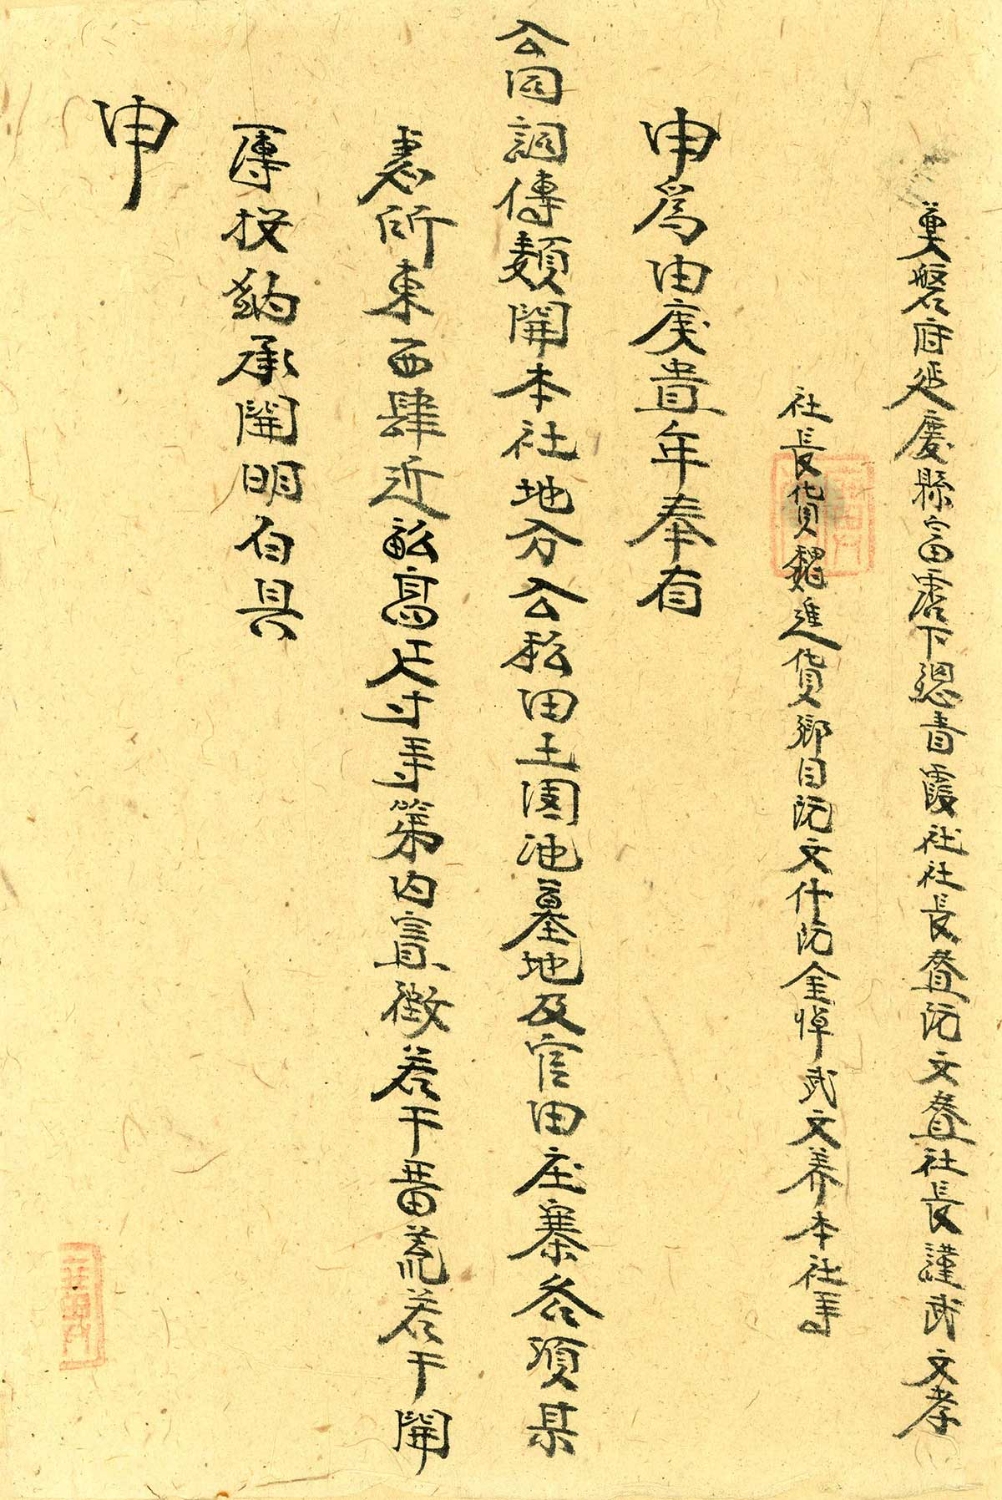 奠磐府延慶縣富畱下總青霞社社長𧶮阮文𧶮社長謹武文孝
社長貨魏進貨鄉目阮文什阮金悼武文养本社等
申爲由庚
年奉有
公同詞傳類開本社地分公私田土園池墓地及官田庄寨各項某
處所東西肆近畝高尺寸等第內實徵若干畨荒若干開
傳投納承開明白具
申